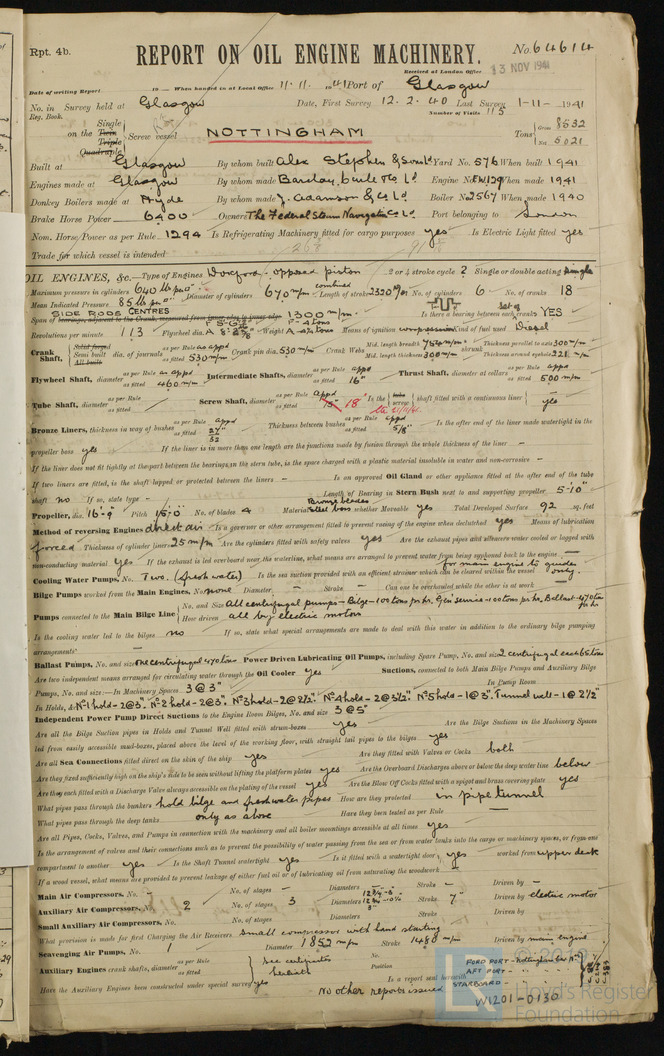 Rpt. 4b.
REPORT ON OIL ENGINE MACHINERY.
No. 64614
Received at London Office 13 NOV 1941
Date of writing Report 19 When handed in at Local Office 11.11.1941 Port of Glasgow
No. in Survey held at Glasgow Date, First Survey 12.2.40 Last Survey 1-11-1941
Reg. Book. Number of Visits 115
Single
on the Twin Triple Quadruple Screw vessel NOTTINGHAM Tons Gross 8532 Net 5021
Built at Glasgow By whom built Alex Stephen & Sons Ld Yard No. 576 When built 1941
Engines made at Glasgow By whom made Barclay, Curle & Co Ld Engine No. When made 1941
Donkey Boilers made at Hyde By whom made J. Adamson & Co Ld Boiler No. 2567 When made 1940
Brake Horse Power 6400 Owners The Federal Steam Navigation Co Ld Port belonging to London
Nom. Horse Power as per Rule 1294 Is Refrigerating Machinery fitted for cargo purposes yes Is Electric Light fitted yes
Trade for which vessel is intended
OIL ENGINES, &c.—Type of Engines Doxford - opposed piston 2 or 4 stroke cycle 2 Single or double acting single
Maximum pressure in cylinders 640 lbs Diameter of cylinders 670 m/m Length of stroke combined 2320 m/m No. of cylinders 6 No. of cranks 18
Mean Indicated Pressure 85 lbs
SIDE RODS CENTRES 1300 m/m Is there a bearing between each crank YES
Revolutions per minute 113 Flywheel dia. Weight Means of ignition compression Kind of fuel used Diesel
Crank Shaft, Solid forged Semi built All built dia. of journals as per Rule as appd as fitted 530 m/m Crank pin dia. 530 m/m Crank Webs Mid. length breadth Mid. length thickness 300 m/m shrunk Thickness parallel to axis 300 m/m Thickness around eyehole 221 m/m
Flywheel Shaft, diameter as per Rule as appd as fitted 460 m/m Intermediate Shafts, diameter as per Rule appd as fitted 16" Thrust Shaft, diameter at collars as per Rule appd as fitted 500 m/m
Tube Shaft, diameter as per Rule as fitted Screw Shaft, diameter as per Rule appd as fitted 15" 18" Is the tube screw shaft fitted with a continuous liner yes
Bronze Liners, thickness in way of bushes as per Rule appd as fitted 27/32 Thickness between bushes as per Rule appd as fitted 5/8" Is the after end of the liner made watertight in the
propeller boss yes If the liner is in more than one length are the junctions made by fusion through the whole thickness of the liner –
If the liner does not fit tightly at the part between the bearings in the stern tube, is the space charged with a plastic material insoluble in water and non-corrosive –
If two liners are fitted, is the shaft lapped or protected between the liners – Is an approved Oil Gland or other appliance fitted at the after end of the tube
shaft no If so, state type – Length of Bearing in Stern Bush next to and supporting propeller 5'-10"
Propeller, dia. 16'-9" Pitch 15'-0" No. of blades 4 Material Bronze blades Steel boss whether Moveable yes Total Developed Surface 92 sq. feet
Method of reversing Engines direct air Is a governor or other arrangement fitted to prevent racing of the engine when declutched yes Means of lubrication
forced Thickness of cylinder liners 25 m/m Are the cylinders fitted with safety valves yes Are the exhaust pipes and silencers water cooled or lagged with
non-conducting material yes If the exhaust is led overboard near the waterline, what means are arranged to prevent water from being syphoned back to the engine –
Cooling Water Pumps, No. Two. (fresh water) Is the sea suction provided with an efficient strainer which can be cleared within the vessel for main engine to guides only.
Bilge Pumps worked from the Main Engines, No. none Diameter – Stroke – Can one be overhauled while the other is at work –
Pumps connected to the Main Bilge Line No. and Size All centrifugal pumps - Bilge - 100 tons pr hr. Gen service - 100 tons pr hr. Ballast - 470 tons pr hr
How driven all by electric motors
Is the cooling water led to the bilges no If so, state what special arrangements are made to deal with this water in addition to the ordinary bilge pumping
arrangements
Ballast Pumps, No. and size One centrifugal 470 tons Power Driven Lubricating Oil Pumps, including Spare Pump, No. and size 2 centrifugal each 65 tons
Are two independent means arranged for circulating water through the Oil Cooler yes Suctions, connected to both Main Bilge Pumps and Auxiliary Bilge
Pumps, No. and size:—In Machinery Spaces 3 @ 3" In Pump Room
In Holds, &c. No 1 hold - 2 @ 3. No 2 hold - 2 @ 3". No 3 hold - 2 @ 2½". No 4 hold - 2 @ 3½". No 5 hold - 1 @ 3". Tunnel well - 1 @ 2½"
Independent Power Pump Direct Suctions to the Engine Room Bilges, No. and size 3 @ 5"
Are all the Bilge Suction pipes in Holds and Tunnel Well fitted with strum-boxes yes Are the Bilge Suctions in the Machinery Spaces
led from easily accessible mud-boxes, placed above the level of the working floor, with straight tail pipes to the bilges yes
Are all Sea Connections fitted direct on the skin of the ship yes Are they fitted with Valves or Cocks both
Are they fixed sufficiently high on the ship's side to be seen without lifting the platform plates yes Are the Overboard Discharges above or below the deep water line below
Are they each fitted with a Discharge Valve always accessible on the plating of the vessel yes Are the Blow Off Cocks fitted with a spigot and brass covering plate yes
What pipes pass through the bunkers hold bilge and freshwater pipes How are they protected in pipe tunnel
What pipes pass through the deep tanks only as above Have they been tested as per Rule –
Are all Pipes, Cocks, Valves, and Pumps in connection with the machinery and all boiler mountings accessible at all times yes
Is the arrangement of valves and their connections such as to prevent the possibility of water passing from the sea or from water tanks into the cargo or machinery spaces, or from one
compartment to another yes Is the Shaft Tunnel watertight yes Is it fitted with a watertight door yes worked from upper deck
If a wood vessel, what means are provided to prevent leakage of either fuel oil or of lubricating oil from saturating the woodwork –
Main Air Compressors, No. – No. of stages – Diameters – Stroke – Driven by –
Auxiliary Air Compressors, No. 2 No. of stages 3 Diameters Stroke 7" Driven by electric motor
Small Auxiliary Air Compressors, No. No. of stages Diameters Stroke Driven by
What provision is made for first Charging the Air Receivers Small compressor with hand starting
Scavenging Air Pumps, No. 1 Diameter 1852 m/m Stroke 1480 m/m Driven by main engine
Auxiliary Engines crank shafts, diameter as per Rule as fitted See certificates herewith No. Position
Have the Auxiliary Engines been constructed under special survey yes Is a report sent herewith
No other reports issued
FORD PORT - Nottingham No
AFT PORT -
STARBOARD -
W1201-0130
Lloyd's Register
Foundation